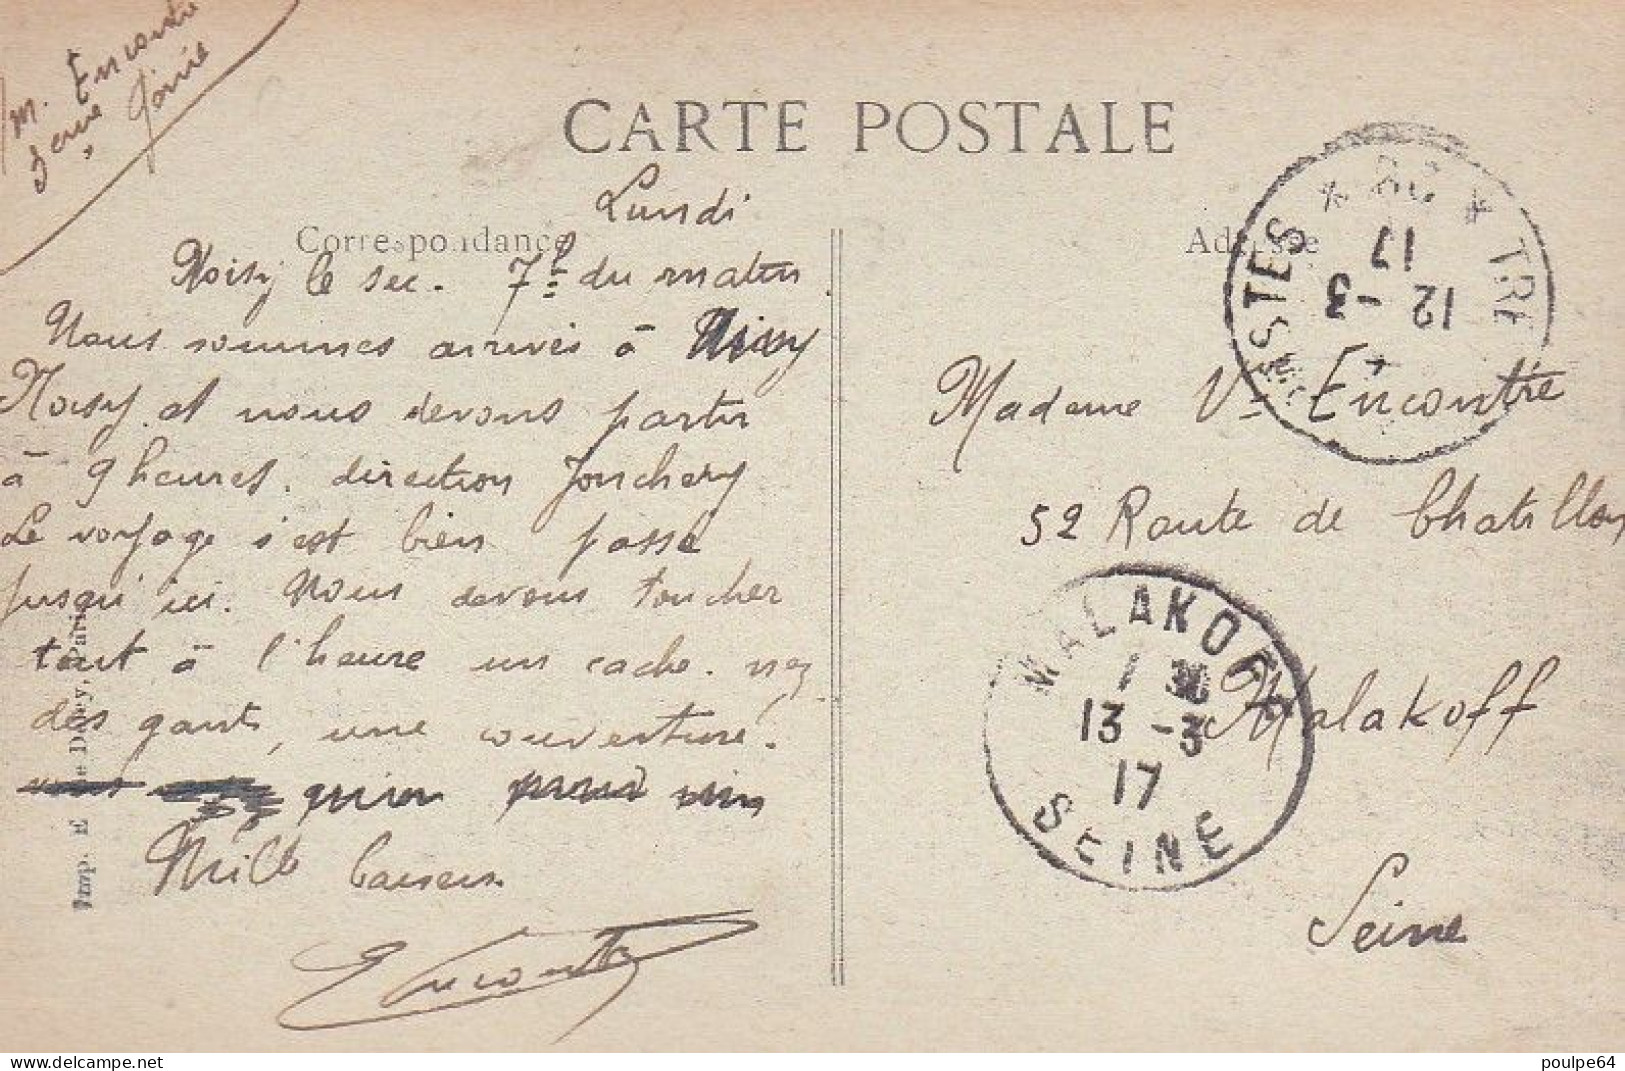 M. Encontre
Génie
CARTE POSTALE
Correspondance
Adresse
Lundi
Noisy le sec. 7h du matin
Nous sommes arrivés à
Noisy et nous devons partir
à 9 heures. direction Jonchery
Le voyage s'est bien passé
jusqu'ici. Nous devons toucher
tout à l'heure un cache. nez
des gants, une couverture.
Mille baisers
Encontre
Madame Vve Encontre
52 Route de Chatillon
Malakoff
Seine
12 -3
17
MALAKOFF
1 30
13 -3
17
SEINE
Imp. E Deley, Paris
www.delcampe.net
poulpe64